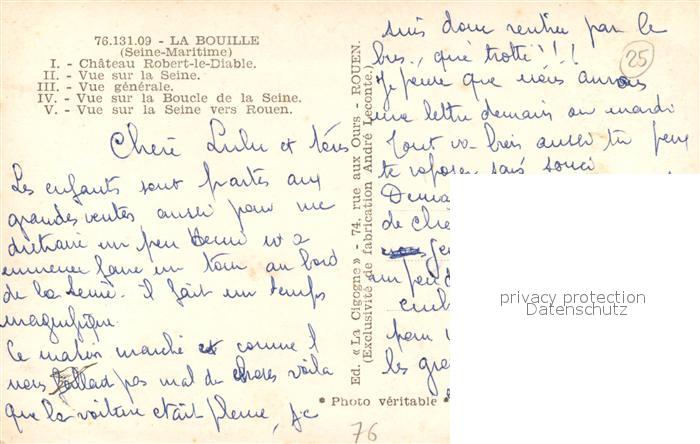 76.131.09 - LA BOUILLE
(Seine-Maritime)
I. - Château Robert-le-Diable.
II. - Vue sur la Seine.
III. - Vue générale.
IV. - Vue sur la Boucle de la Seine.
V. - Vue sur la Seine vers Rouen.
Chere Lulu et
Les enfants sont partes aux
grandes ventes aussi pour me
distraire un peu m'a
emmener faire un tour au bord
de la Seine. il fait un temps
magnifique.
Ce matin marché et comme l
nous pas mal de choses voila
que la voiture etait pleine, je
Ed. « La Cigogne » - 74, rue aux Ours - ROUEN.
(Exclusivité de fabrication André Leconte.)
suis donc rentree par le
bus, que trotte !!!
25
Je pense que nous aurons
une lettre demain ou mardi
Tout va bien aussi tu peux
te reposer sans souci
de
un
les
* Photo véritable *
76
privacy protection
Datenschutz